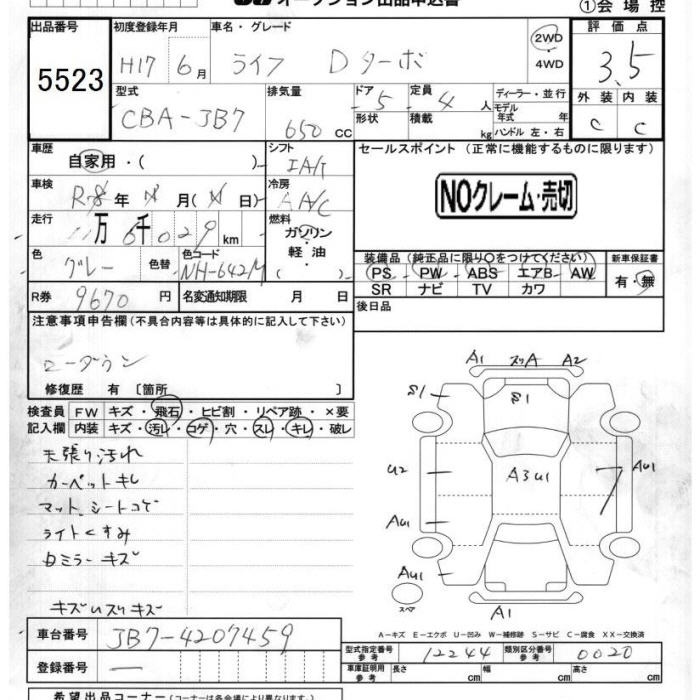 オークション出品申込書
①会場控
出品番号 初度登録年月 車名・グレード 評価点
5523 H17 6月 ライフ Dターボ 2WD 4WD 3.5
型式 排気量 ドア 5 定員 4人 ディーラー・並行 外装 内装
CBA-JB7 650cc 形状 積載 kg モデル年式 年 C C
ハンドル 左・右
車歴 シフト セールスポイント (正常に機能するものに限ります)
自家用・( ) IA/T
車検 年 月( ) 冷房 NOクレーム・売切
A A/C
走行 11万6千029km 燃料
ガソリン・軽油・( )
色 色替 色コード 装備品 (純正品に限り○をつけてください) 新車保証書
グレー NH-642M PS PW ABS エアB AW 有・無
SR ナビ TV カワ
R券 9670円 名変通知期限 月 日 後日品
注意事項申告欄(不具合内容等は具体的に記入して下さい)
ローダウン
修復歴 有 [箇所 ]
検査員 FW キズ・飛石・ヒビ割・リペア跡・×要
記入欄 内装 キズ・汚レ・コゲ・穴・スレ・キレ・破レ
天張り汚れ
カーペットキレ
マット、シートコゲ
ライトくすみ
Dミラーキズ
キズUスリキズ
A1 スリA A2
S1 S1
U2 A3U1 AU1
AU1
AU1
スペア A1
A-キズ E-エクボ U-凹み W-補修跡 S-サビ C-腐食 XX-交換済
車台番号 JB7-4207459
型式指定番号 参考 12244 類別区分番号 参考 0020
登録番号 —
車庫証明用 参考 長さ cm 幅 cm 高さ cm
希望出品コーナー (コーナーは各会場により異なります。)